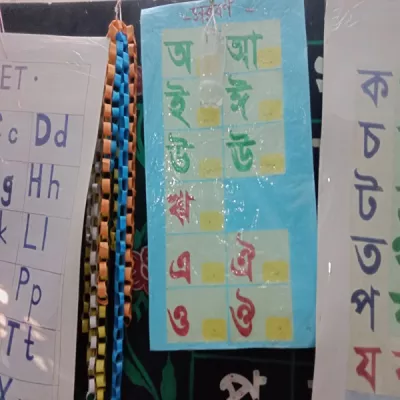 ET
c Dd
g Hh
k Ll
Pp
Tt
স্বরবর্ণ
অ আ
ই ঈ
উ ঊ
ঋ
এ ঐ
ও ঔ
ক
চ
ট
ত
প
য